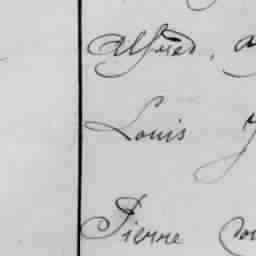 Alfred,
Louis
Pierre